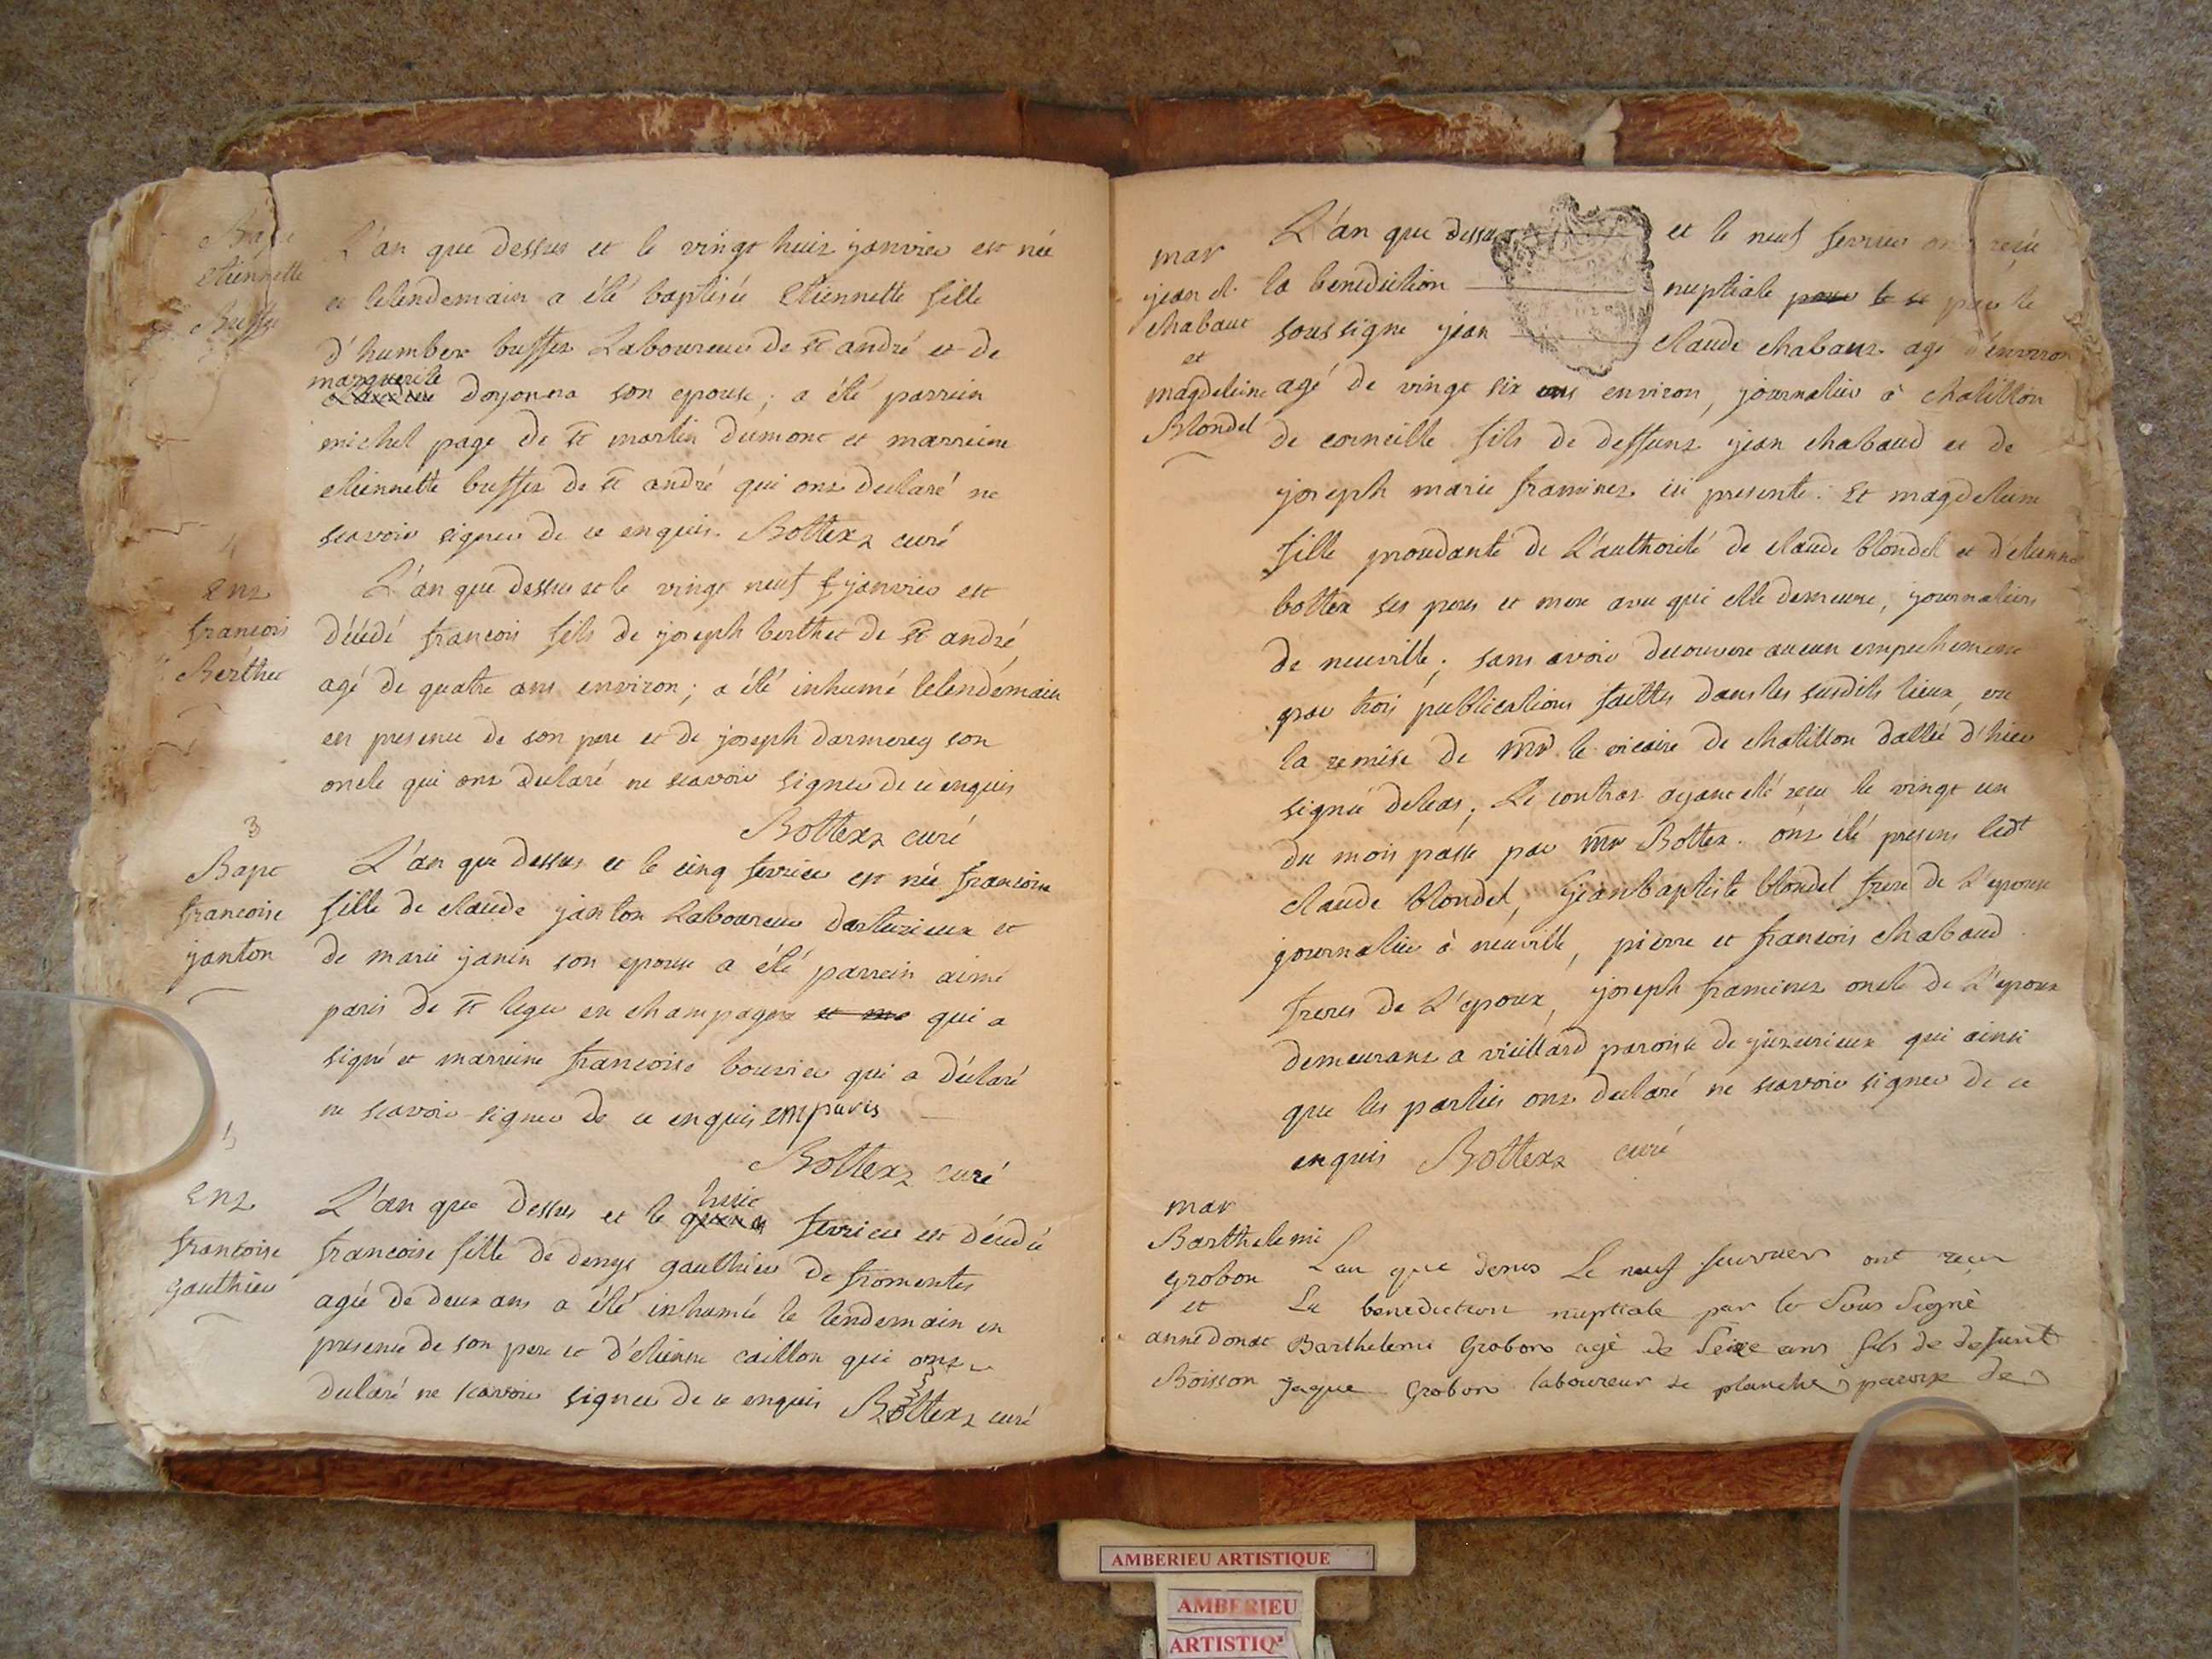 Bapt
etiennette
Buffet
L'an que dessus et le vingt huit janvier est née
et lelendemain a été baptisée etiennette fille
d'humber buffet Laboureur de st andré et de
marguerite
doyonna son epouse; a été parrein
michel page de st martin dumont et marreine
etiennette buffet de st andré qui ont declaré ne
scavoir signer de ce enquis. Bottex curé
Ent
francois
Berthet
L'an que dessus et le vingt neuf janvier est
décédé francois fils de joseph berthet de st andré
agé de quatre ans environ; a été inhumé lelendemain
en presence de son pere et de joseph darmerey son
oncle qui ont declaré ne scavoir signer de ce enquis
Bottex curé
3
Bapt
francoise
janton
L'an que dessus et le cinq fevrier est née francoise
fille de claude janton Laboureur darturieux et
de marie janin son epouse a été parrein aimé
paris de st leger en champagne et ma qui a
signé et marreine francoise bouvier qui a déclaré
ne scavoir signer de ce enquis emparis
Bottex curé
Ent
francoise
gauthier
L'an que dessus et le huit fevrier est décédée
francoise fille de denys gauthier de fromentes
agée de deux ans a été inhumée le lendemain en
presence de son pere et d'etienne caillon qui ont
declaré ne scavoir signer de ce enquis Bottex curé
mar
jean cl.
chabaut
et
magdeleine
Blondel
L'an que dessus et le neuf fevrier ont reçu
la benediction nuptiale pour le par le
soussigne jean claude chabaut agé d'environ
agé de vingt six ans environ, journalier à chatillon
de corneille fils de deffunt jean chabaud et de
joseph marie framinet ici presente. Et magdeleine
fille proudante de L'authorité de claude blondel et d'etienne
bottex ses peres et mere avec qui elle demeure, journaliers
de neuville; sans avoir decouvert aucun empechement
par trois publications faittes dans les susdits lieux, vu
la remise de mr le vicaire de chatillon dattée d'hier
signée deleas; Le contrat ayant été reçu le vingt un
du mois passé par mr Bottex. ont été presens ledt
claude blondel, jeanbaptiste blondel frere de L'epouse
journalier à neuville, pierre et francois chabaud
freres de L'epoux, joseph framinet oncle de L'epoux
demeurant a vieillard paroisse de jujurieux qui ainsi
que les parties ont declaré ne scavoir signer de ce
enquis Bottex curé
mar
Barthelemi
grobon
et
anne donat
Boisson
Lan que desus Le neuf feuvrier ont reçu
La benediction nuptiale par le Sous Signé
Barthelemi Grobon agé de Seize ans fils de defunt
Jaque Grobon laboureur de planche paroix de
AMBERIEU ARTISTIQUE
AMBERIEU
ARTISTIQ